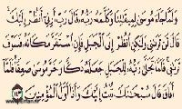 وَلَمَّا جَاءَ مُوسَىٰ لِمِيقَاتِنَا وَكَلَّمَهُ رَبُّهُ قَالَ رَبِّ أَرِنِي أَنظُرْ إِلَيْكَ
قَالَ لَن تَرَانِي وَلَٰكِنِ انظُرْ إِلَى الْجَبَلِ فَإِنِ اسْتَقَرَّ مَكَانَهُ فَسَوْفَ
تَرَانِي فَلَمَّا تَجَلَّىٰ رَبُّهُ لِلْجَبَلِ جَعَلَهُ دَكًّا وَخَرَّ مُوسَىٰ صَعِقًا فَلَمَّا
أَفَاقَ قَالَ سُبْحَانَكَ تُبْتُ إِلَيْكَ وَأَنَا أَوَّلُ الْمُؤْمِنِينَ